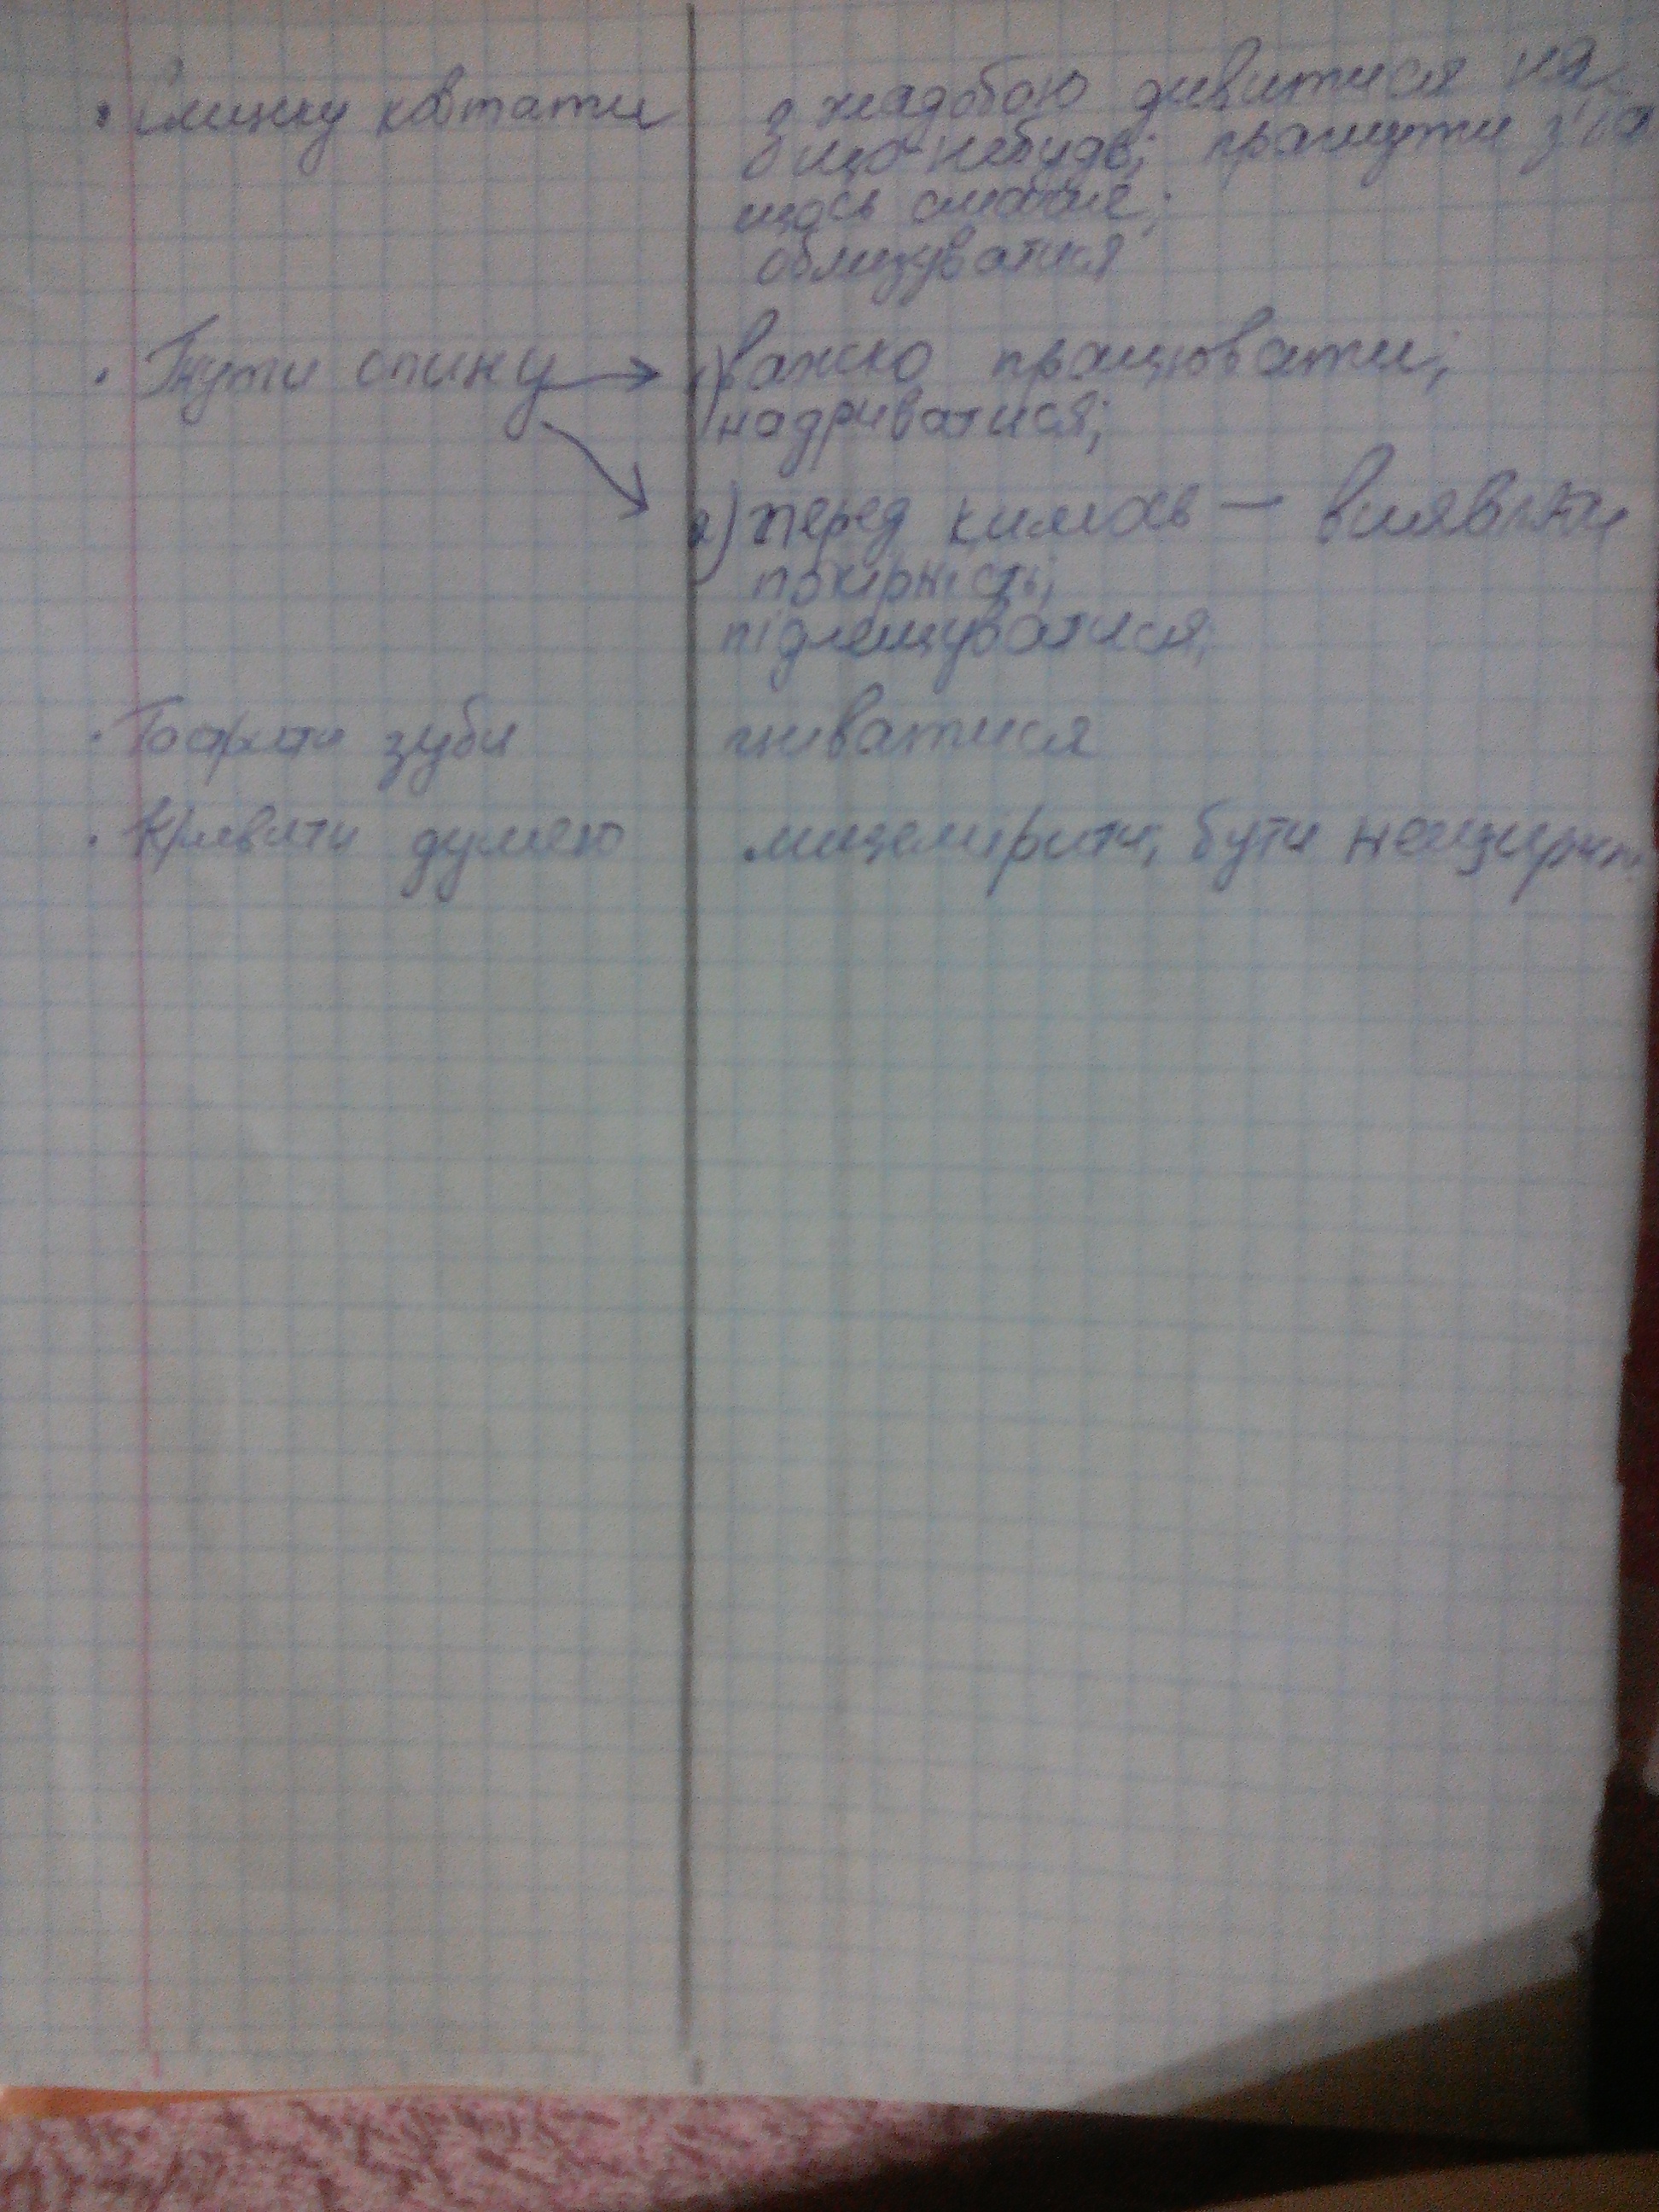 • Слинку ковтати
з жадобою дивитися на
що-небудь; прагнути з'їс
щось смачне;
облизуватися
• Гнути спину → 1) важко працювати;
надриватися;
2) перед кимось — виявляти
покірність;
підлещуватися;
• Гострити зуби гніватися
• Кривити душею лицемірити, бути нещирим